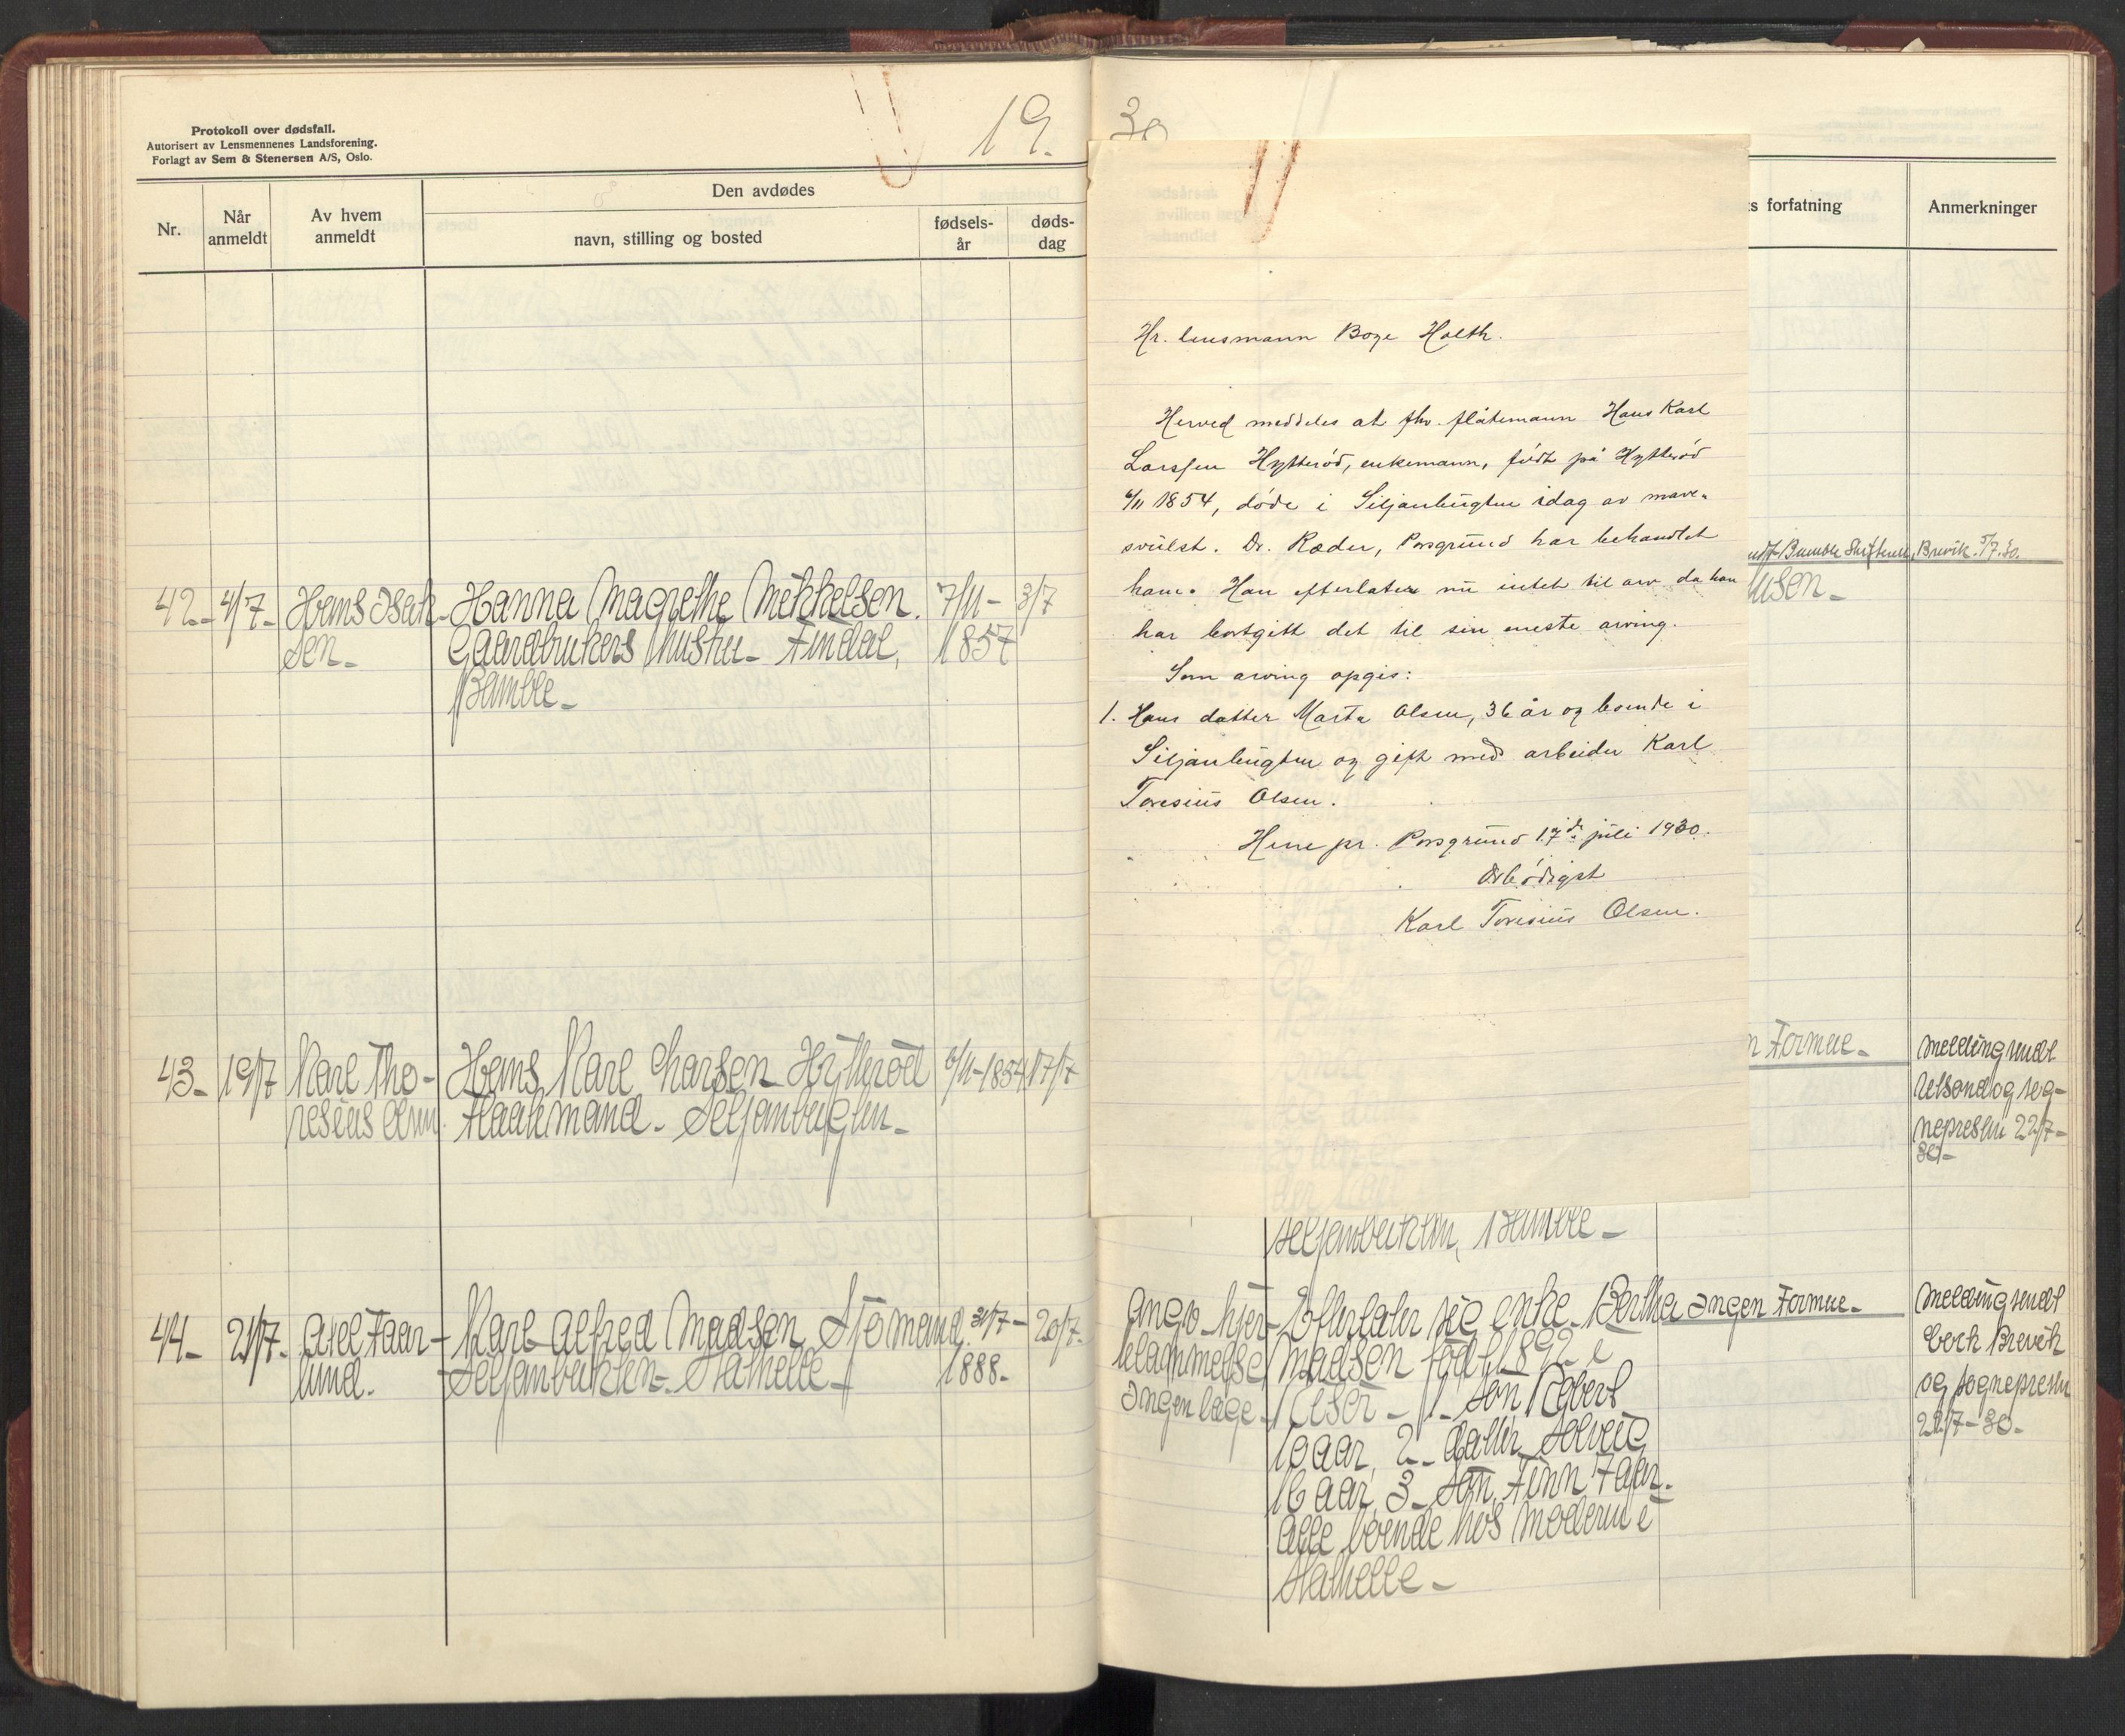 Protokoll over dødsfall.
Autorisert av Lensmennenes Landsforening.
Forlagt av Sem & Stenersen A/S, Oslo.
19.
30
Nr.
Når
anmeldt
Av hvem
anmeldt
Den avdødes
navn, stilling og bosted
fødsels-
år
døds-
dag
s forfatning
Anmerkninger
42 - 4/7 - Hans Isak- Hanna Magrethe Mikkelsen. 7/11 - 3/7
sen - Gaardbrukers hustru - Findal, 1857
Bamble -
43 - 19/7 Karl Tho- Hans Karl Larsen Hytterød 6/11-1854 17/7
resius Olsen. Flaatemand - Siljanbugten -
44 - 21/7. Axel Faar- Karl Alfred Madsen Sjømand. 3/7 - 20/7.
lund. - Siljanbukten - Stathelle - 1888 -
Hr. lensmann Boye Holth.
Herved meddeles at fhv. flåtemann Hans Karl
Larssen Hytterød, enkemann, født på Hytterød
6/11 1854, døde i Siljanbugten idag av mave-
svulst. Dr. Ræder, Porsgrund har behandlet
ham. Han efterlater nu intet til arv da han
har bortgitt det til sin eneste arving.
Som arving opgis:
1. Hans datter Marta Olsen, 36 år og boende i
Siljanbugten og gift med arbeider Karl
Toresius Olsen.
pr. Porsgrund 17de juli 1930.
Ærbødigst
Karl Toresius Olsen.
Bamble Skifteret, Brevik. 7/7.30.
usen -
n Formue -
Melding sendt
og sog-
nepresten 22/7 -
30 -
Siljanbukten, Bamble -
Angiv. hjer- Efterlater sig enke Bertha Ingen Formue -
telammelse Madsen født 1892 i
Ingen læge -
1 - søn Robert
2 - datter Solveig
16 aar, 3 - søn, Finn 7 aar.
Alle boende hos moderen i
Stathelle -
Melding sendt
Brevik
og sognepresten
22/7 - 30 -